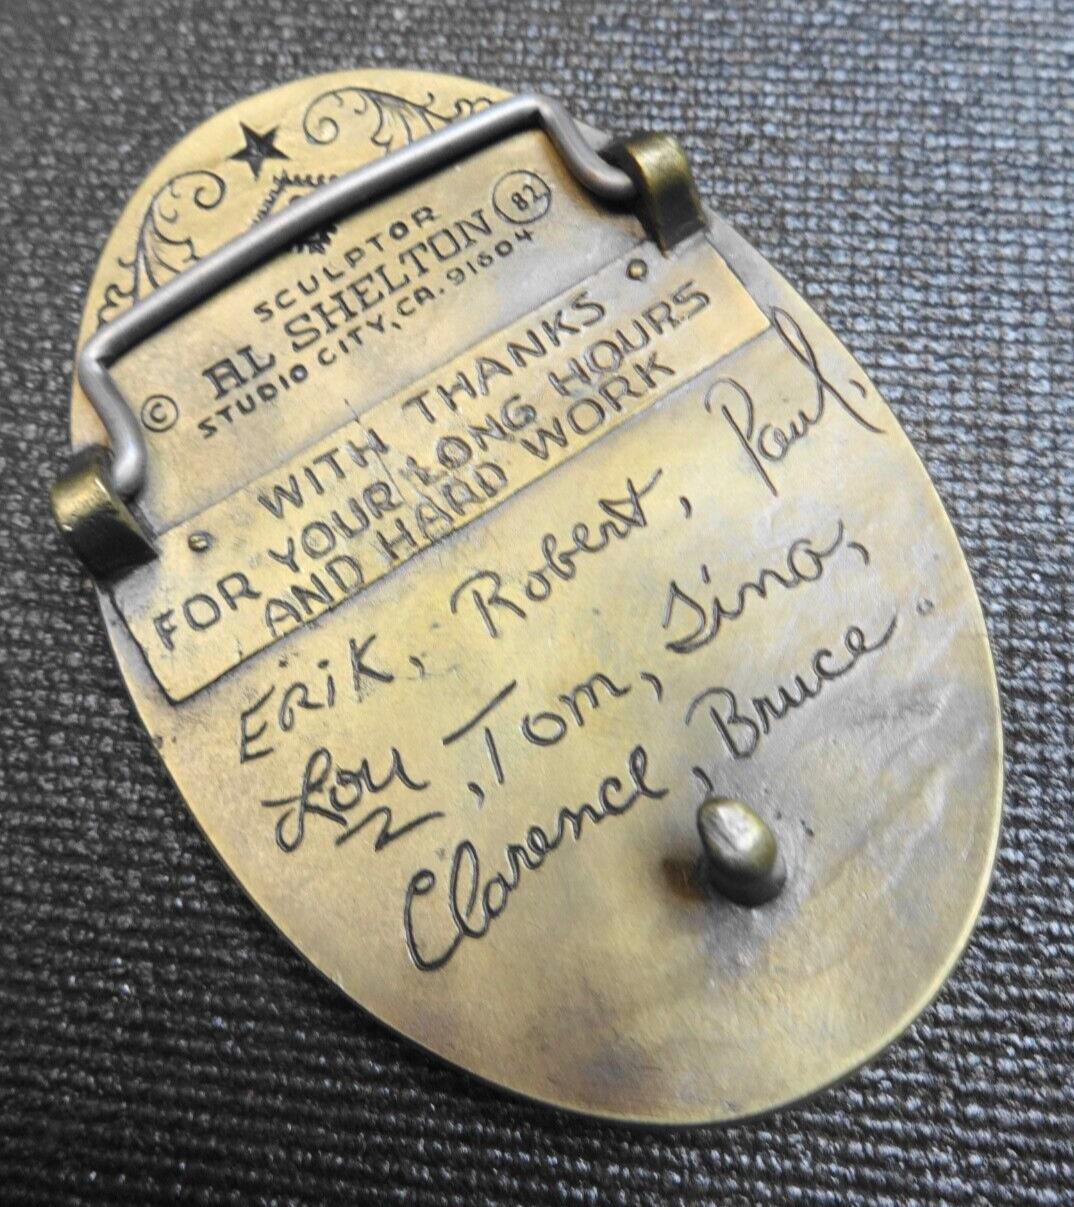 SCULPTOR
© AL SHELTON 82
STUDIO CITY, CA. 91604
WITH THANKS
FOR YOUR LONG HOURS
AND HARD WORK
Erik, Robert, Paul,
Lou, Tom, Tina,
Clarence, Bruce.